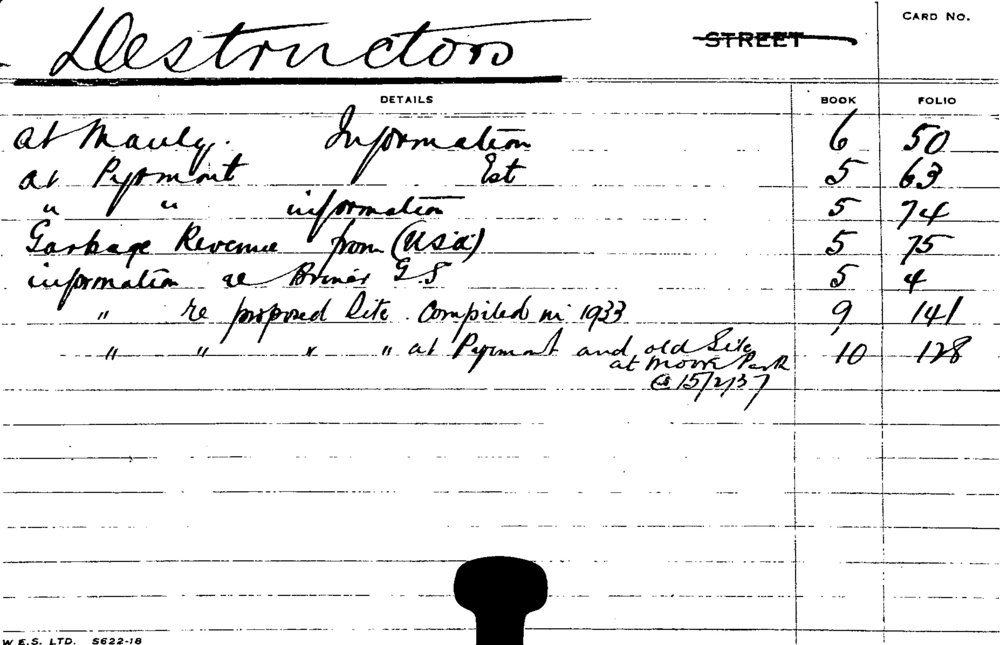 Destructors STREET CARD NO.
DETAILS BOOK FOLIO
at Manly. Information 6 50
at Pyrmont Est 5 63
" " information 5 74
Garbage Revenue from (USA) 5 75
information re G.S 5 4
" re proposed Site. Compiled in 1933 9 141
" " " " at Pyrmont and old Site 10 128
at Moore Park
15/2/37
W.E.S. LTD. S622-18